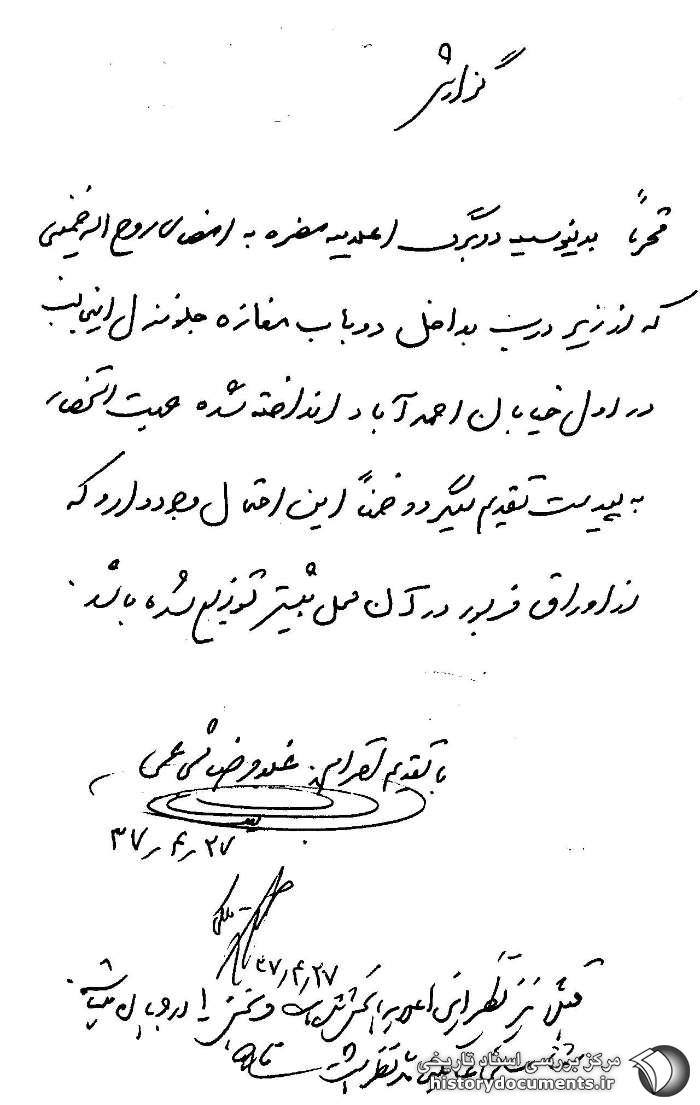 گزارش
محترماً بدینوسیله دو برگ اعلامیه مضره به امضای روح اله خمینی
که از زیر درب بداخل دو باب مغازه جلو منزل اینجانب
در اول خیابان احمدآباد انداخته شده جهت استحضار
به پیوست تقدیم میگردد ضمناً این احتمال وجود دارد که
از اوراق مزبور در آن محل بیشتر توزیع شده باشد.
با تقدیم احترام. غلامرضا
۳۷٫۴٫۲۷
۳۷٫۴٫۲۷
قبلاً نیز نظیر این اعلامیه پخش شده است و پخش را
مرکز بررسی اسناد تاریخی
historydocuments.ir